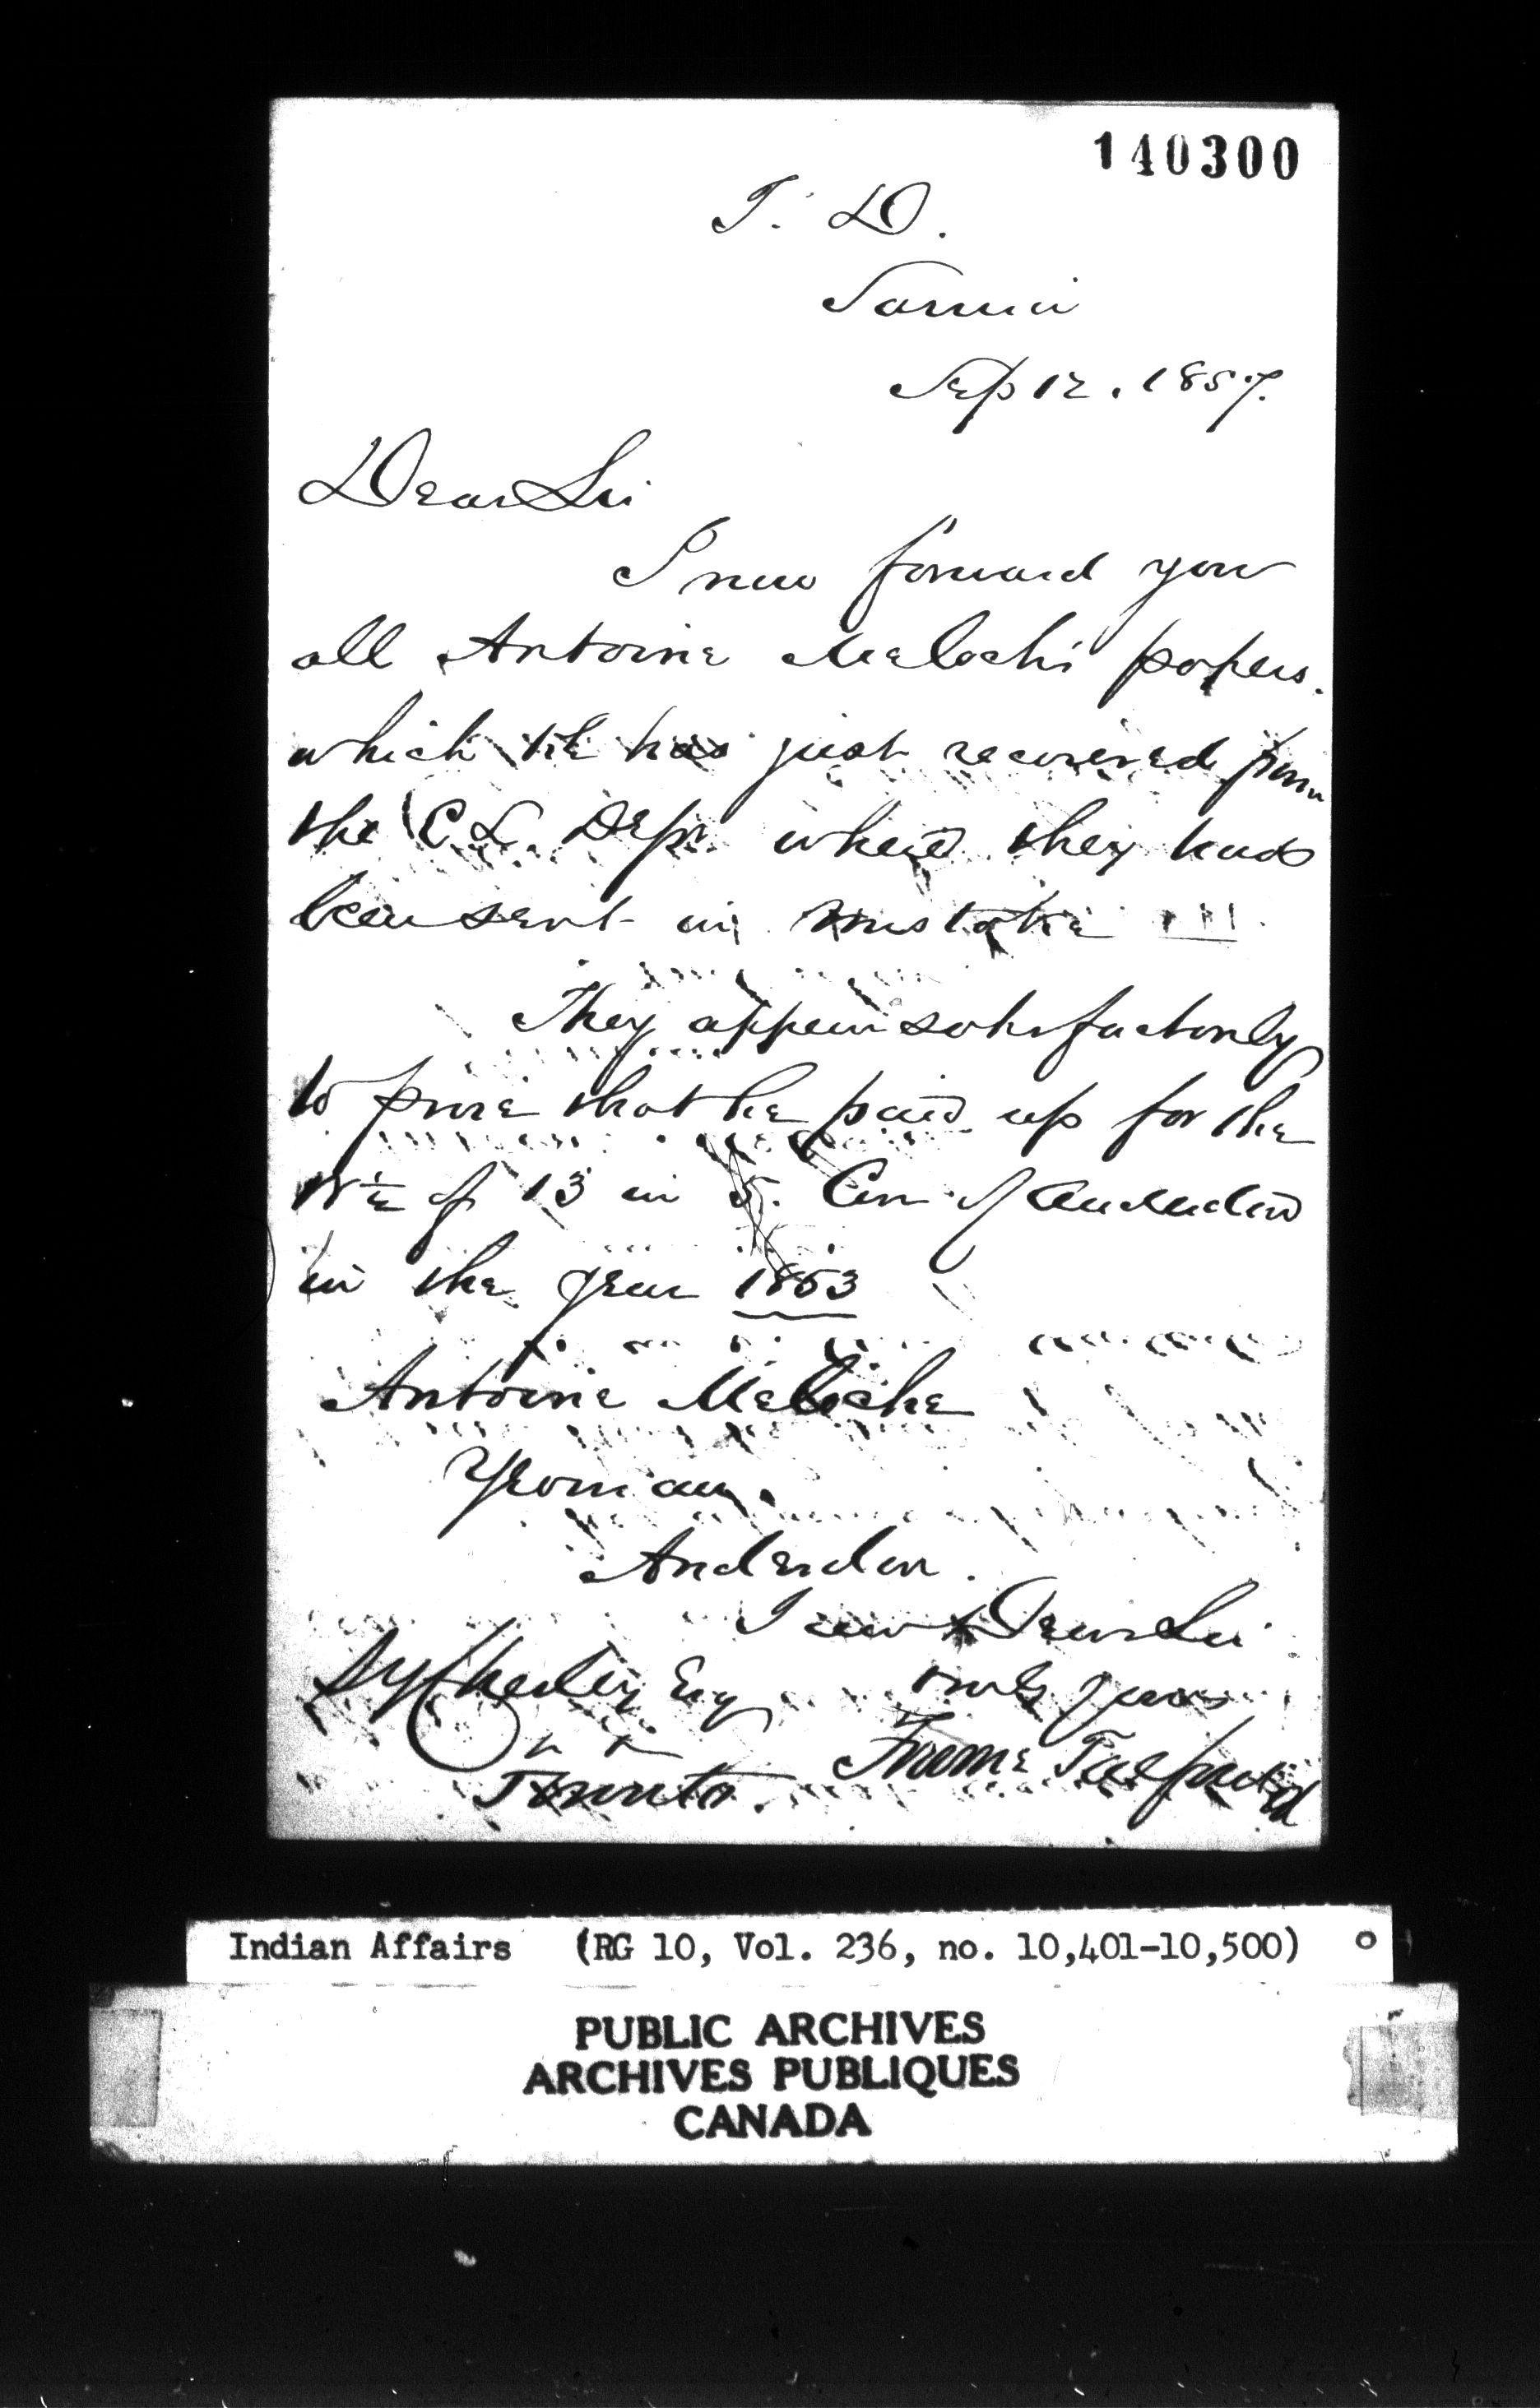 140300
I. D.
Sarnia
Sep 12. 1857.
Dear Sir
I now forward you
all Antoine Melochi papers.
which he has just recovered from
the C L. Dept. where they had
been sent in mistake
They appear satisfactorily
to prove that he paid up for the
½ of 13 in 5. Con of Anderdon
in the year 1853
Antoine Meloche
Yeoman.
Anderdon.
I am Dear Sir
Chesley Esq truly yours
Froome Talfourd
Toronto.
Indian Affairs (RG 10, Vol. 236, no. 10,401-10,500)
PUBLIC ARCHIVES
ARCHIVES PUBLIQUES
CANADA